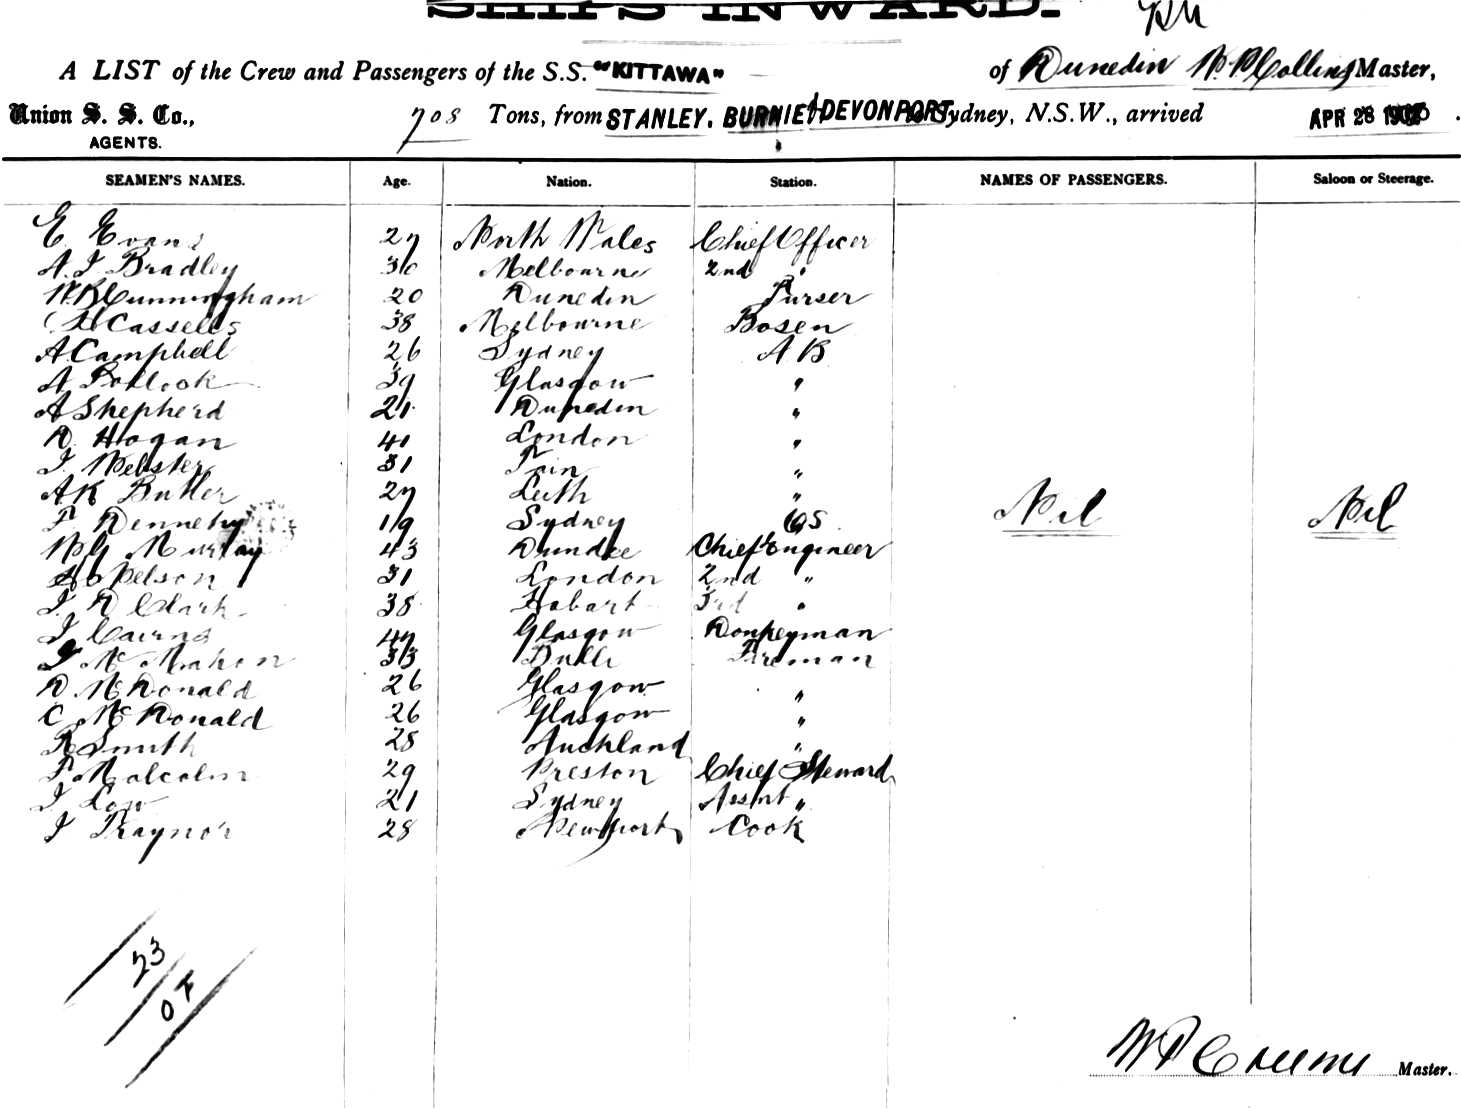 SHIPS INWARD.
A LIST of the Crew and Passengers of the S.S. "KITTAWA" of Dunedin W P Collins Master,
Union S. S. Co., 708 Tons, from STANLEY, BURNIE & DEVONPORT Sydney, N.S.W., arrived APR 28
AGENTS.
SEAMEN'S NAMES. Age. Nation. Station. NAMES OF PASSENGERS. Saloon or Steerage.
E. Evans 27 North Wales Chief Officer
A. J Bradley 30 Melbourne 2nd "
W B Cunningham 20 Dunedin Purser
H Cassells 38 Melbourne Bosen
A Campbell 26 Sydney A B
A Pollock 39 Glasgow "
A Shepherd 21 Dunedin "
D. Hogan 41 London "
J. Webster 31 Tain "
A K Butler 27 Leith "
F. Dennehy 19 Sydney OS Nil Nil
W G Murray 43 Dundee Chief Engineer
Nelson 31 London 2nd "
J. D Clark 38 Hobart 3rd "
J Cairns 47 Glasgow Donkeyman
J Mc Mahon 33 Bulli Fireman
D. McDonald 26 Glasgow "
C McDonald 26 Glasgow "
R Smith 28 Auckland "
F. Malcolm 29 Preston Chief Steward
J Low 21 Sydney Assnt "
J Traynor 28 Newport Cook
23
W P Collins Master.